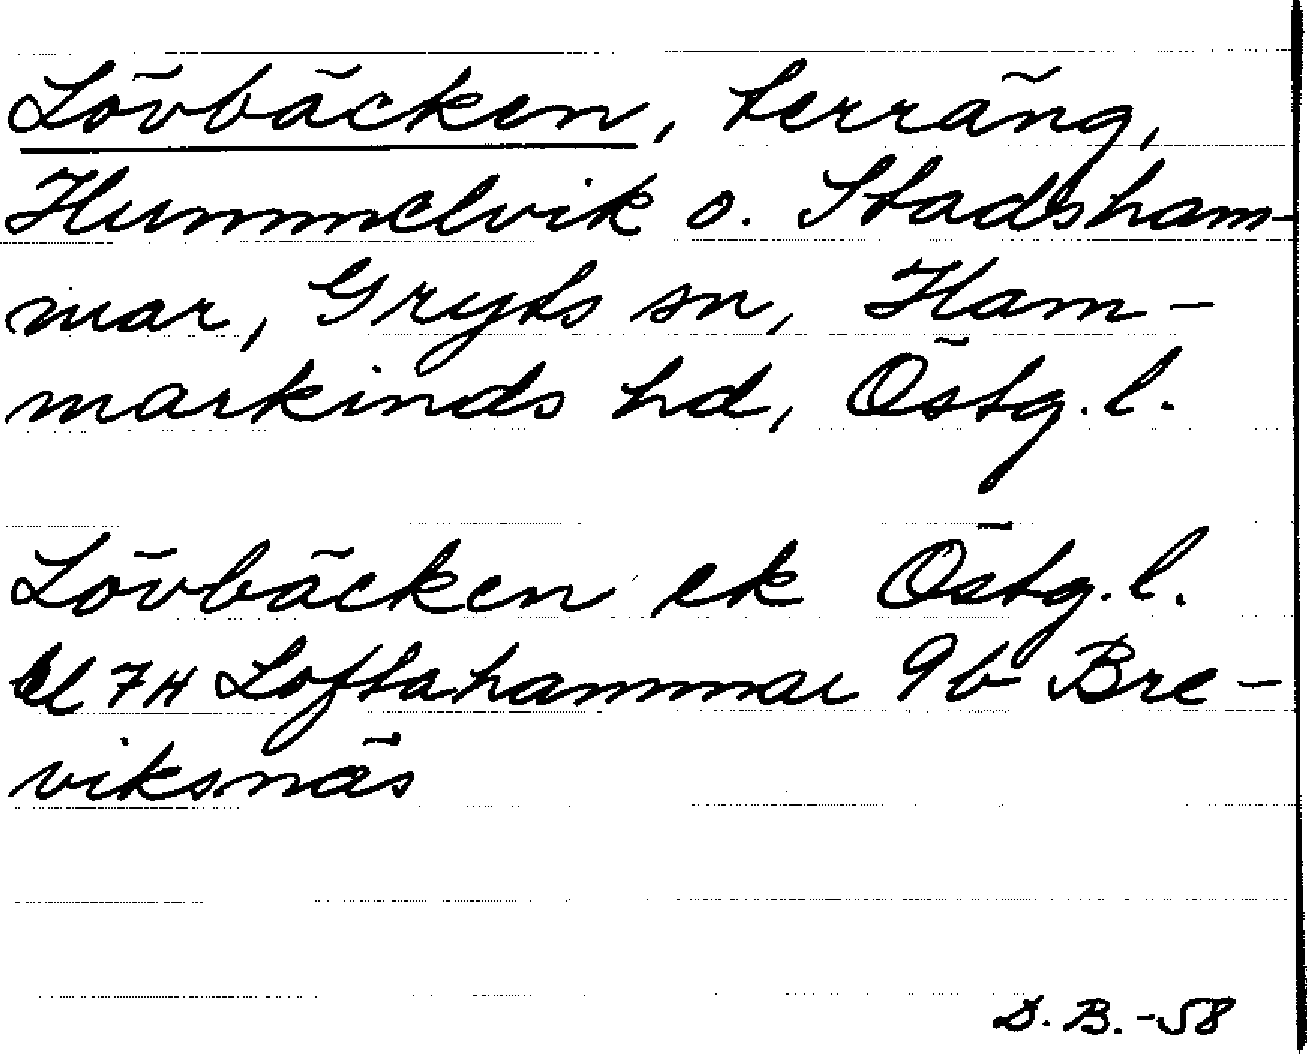 Lövbäcken, terräng,
Hummelvik o. Stadsham-
mar, Gryts sn, Ham-
markinds hd, Östg. l.
Lövbäcken ek Östg. l.
bl 7H Loftahammar 9b Bre-
viksnäs
D. B. -58